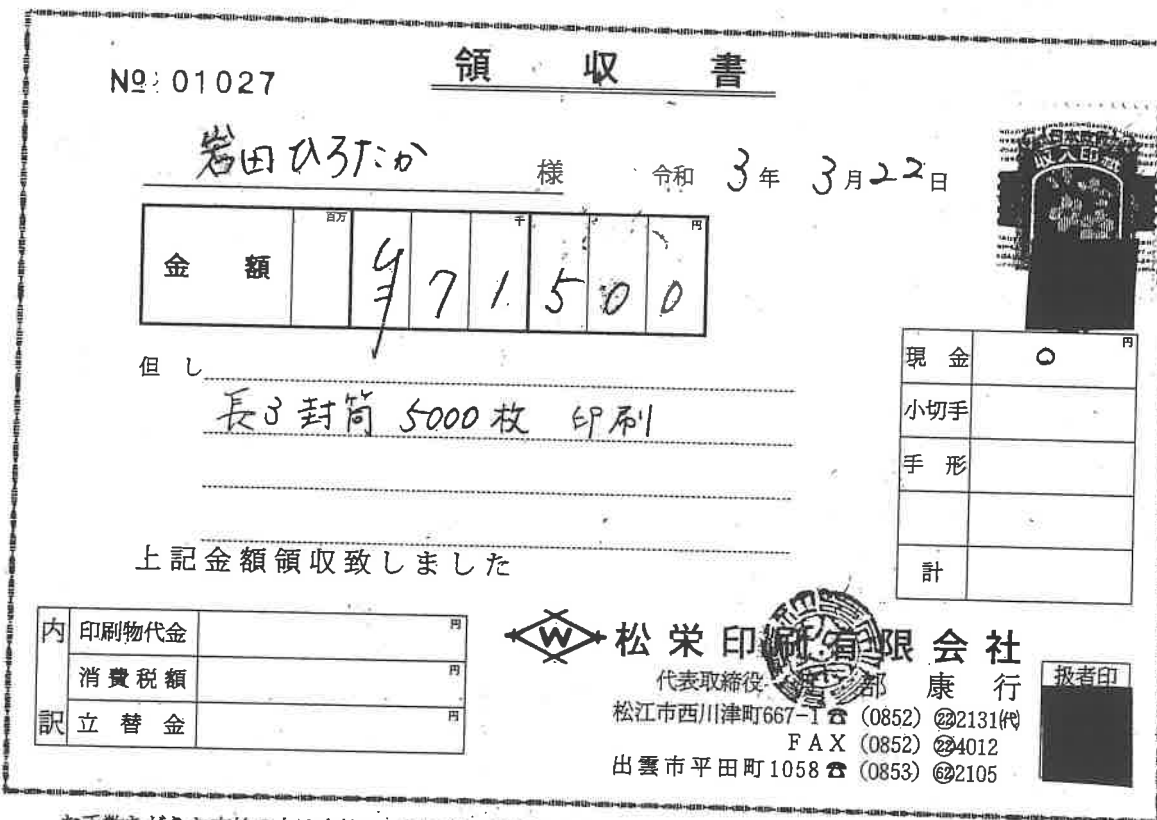 領収書
№ 01027
岩田ひろたか 様
令和 3年 3月22日
日本政府
収入印紙
金額 百万 千 円
¥71,500
但し
長3封筒 5000枚 印刷
上記金額領収致しました
現金 ○ 円
小切手
手形
計
内訳
印刷物代金 円
消費税額 円
立替金 円
W 松栄印刷有限会社
代表取締役 部康行
松江市西川津町667-1 ☎ (0852) ㉒2131㈹
FAX (0852) ㉒4012
出雲市平田町1058 ☎ (0853) 62 2105
扱者印